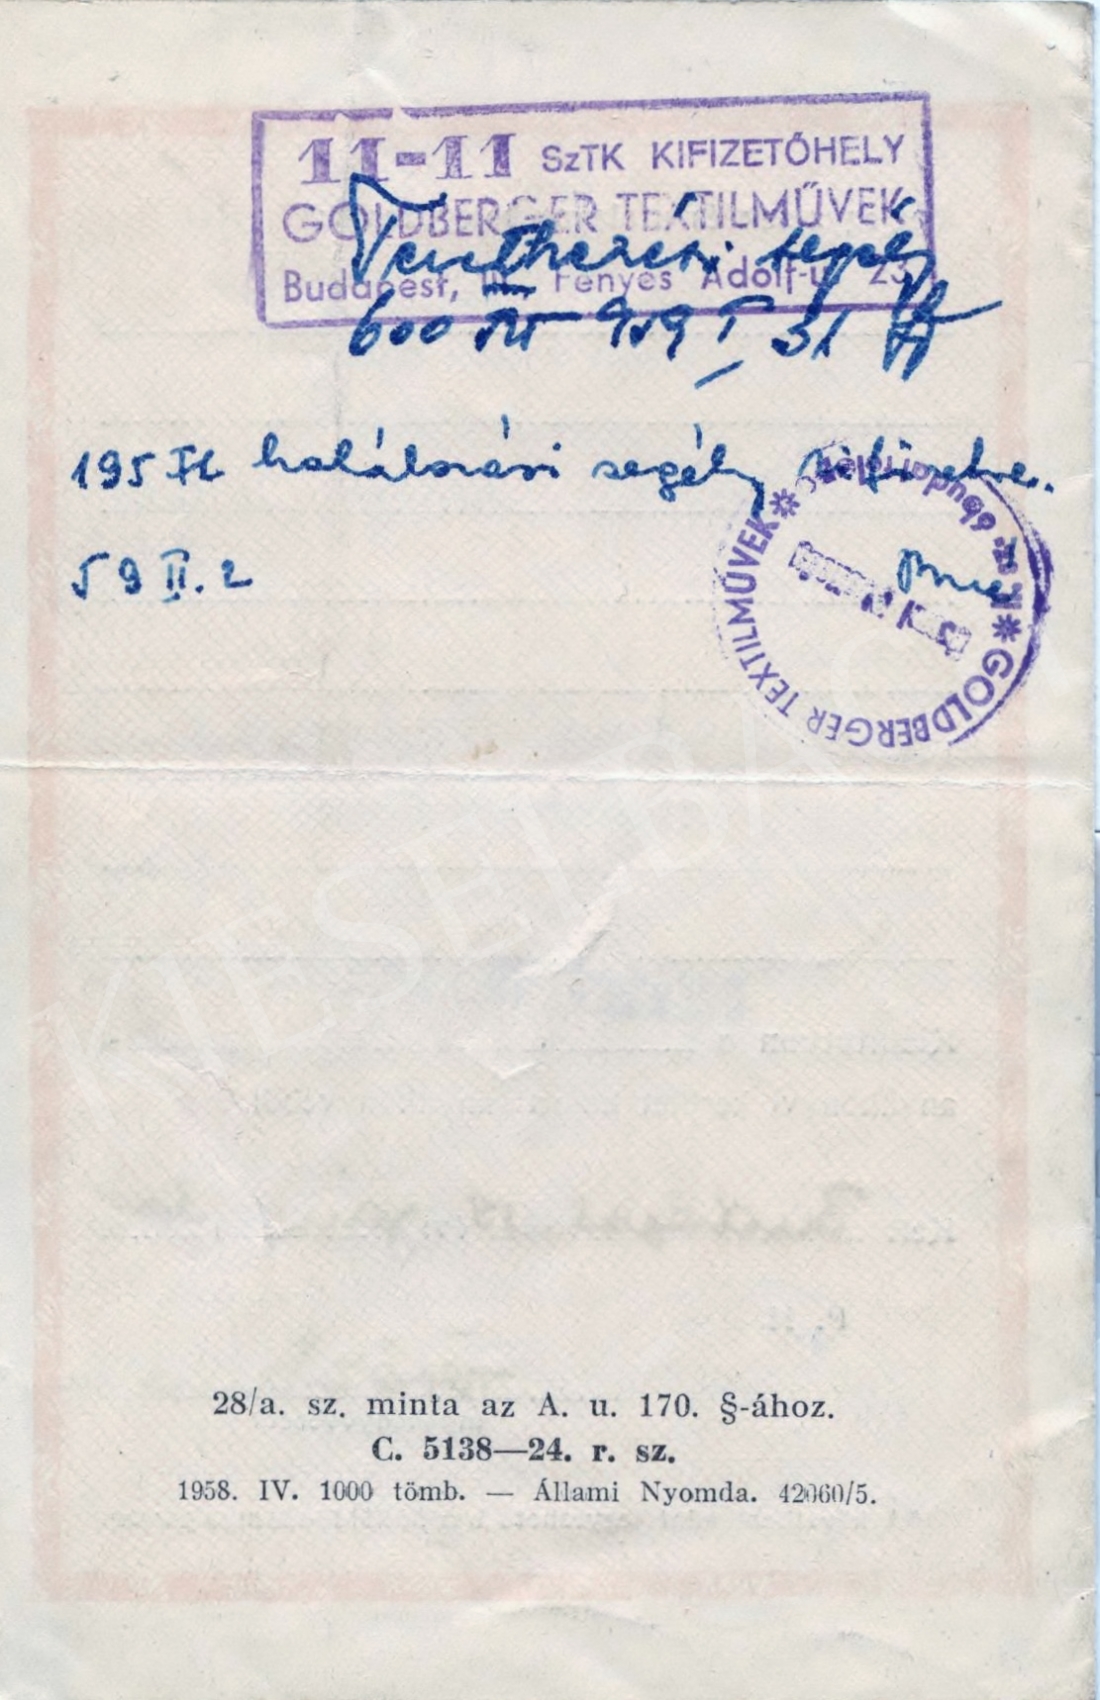 11-11 SzTK KIFIZETŐHELY
GOLDBERGER TEXTILMŰVEK
Budapest, III. Fényes Adolf-u. 23
Temetkezési segély
600 Ft 959 I 31
195 Ft halálozási segély kifizetve.
59 II. 2
GOLDBERGER TEXTILMŰVEK
28/a. sz. minta az A. u. 170. §-ához.
C. 5138—24. r. sz.
1958. IV. 1000 tömb. — Állami Nyomda. 42060/5.
KIESELBACH